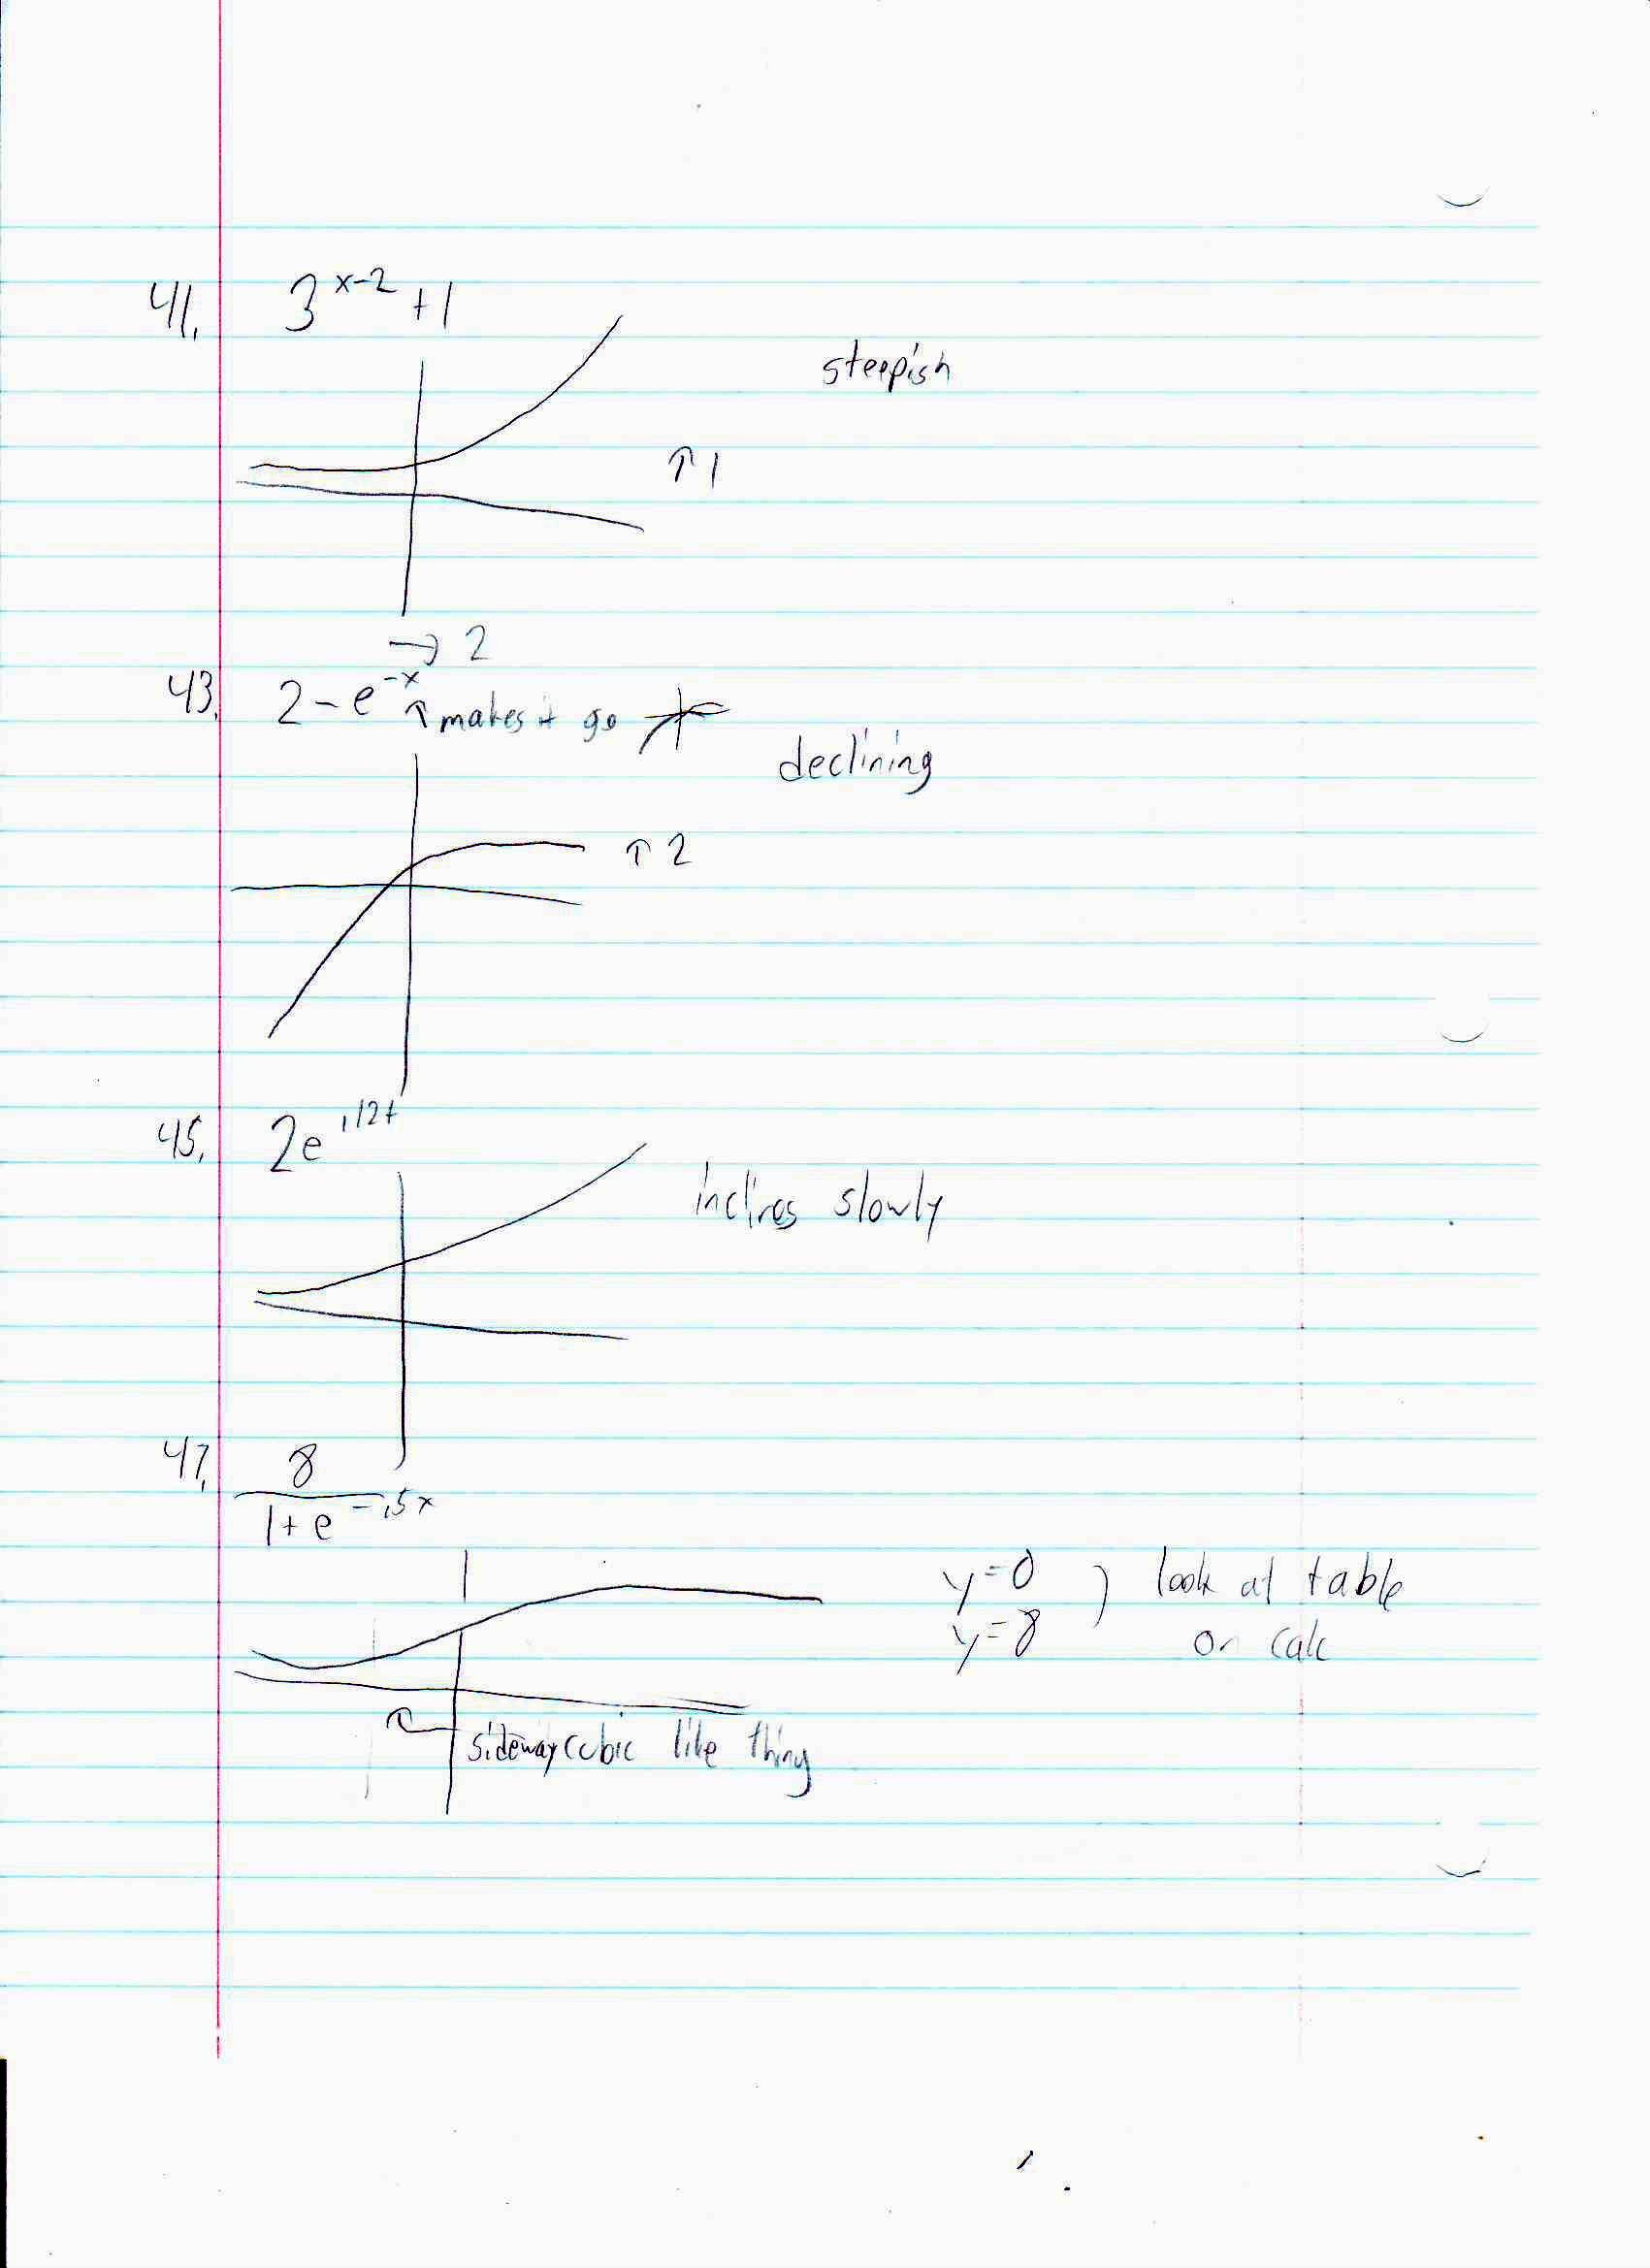 41. 3^x-2 +1
steepish
↑1
→ 2
43. 2-e^-x ↑ makes it go
declining
↑2
45. 2e^.12t
inclines slowly
47. 8
1+e^-.5x
y=0 ) look at table
y=8 on calc
sideway cubic like thing